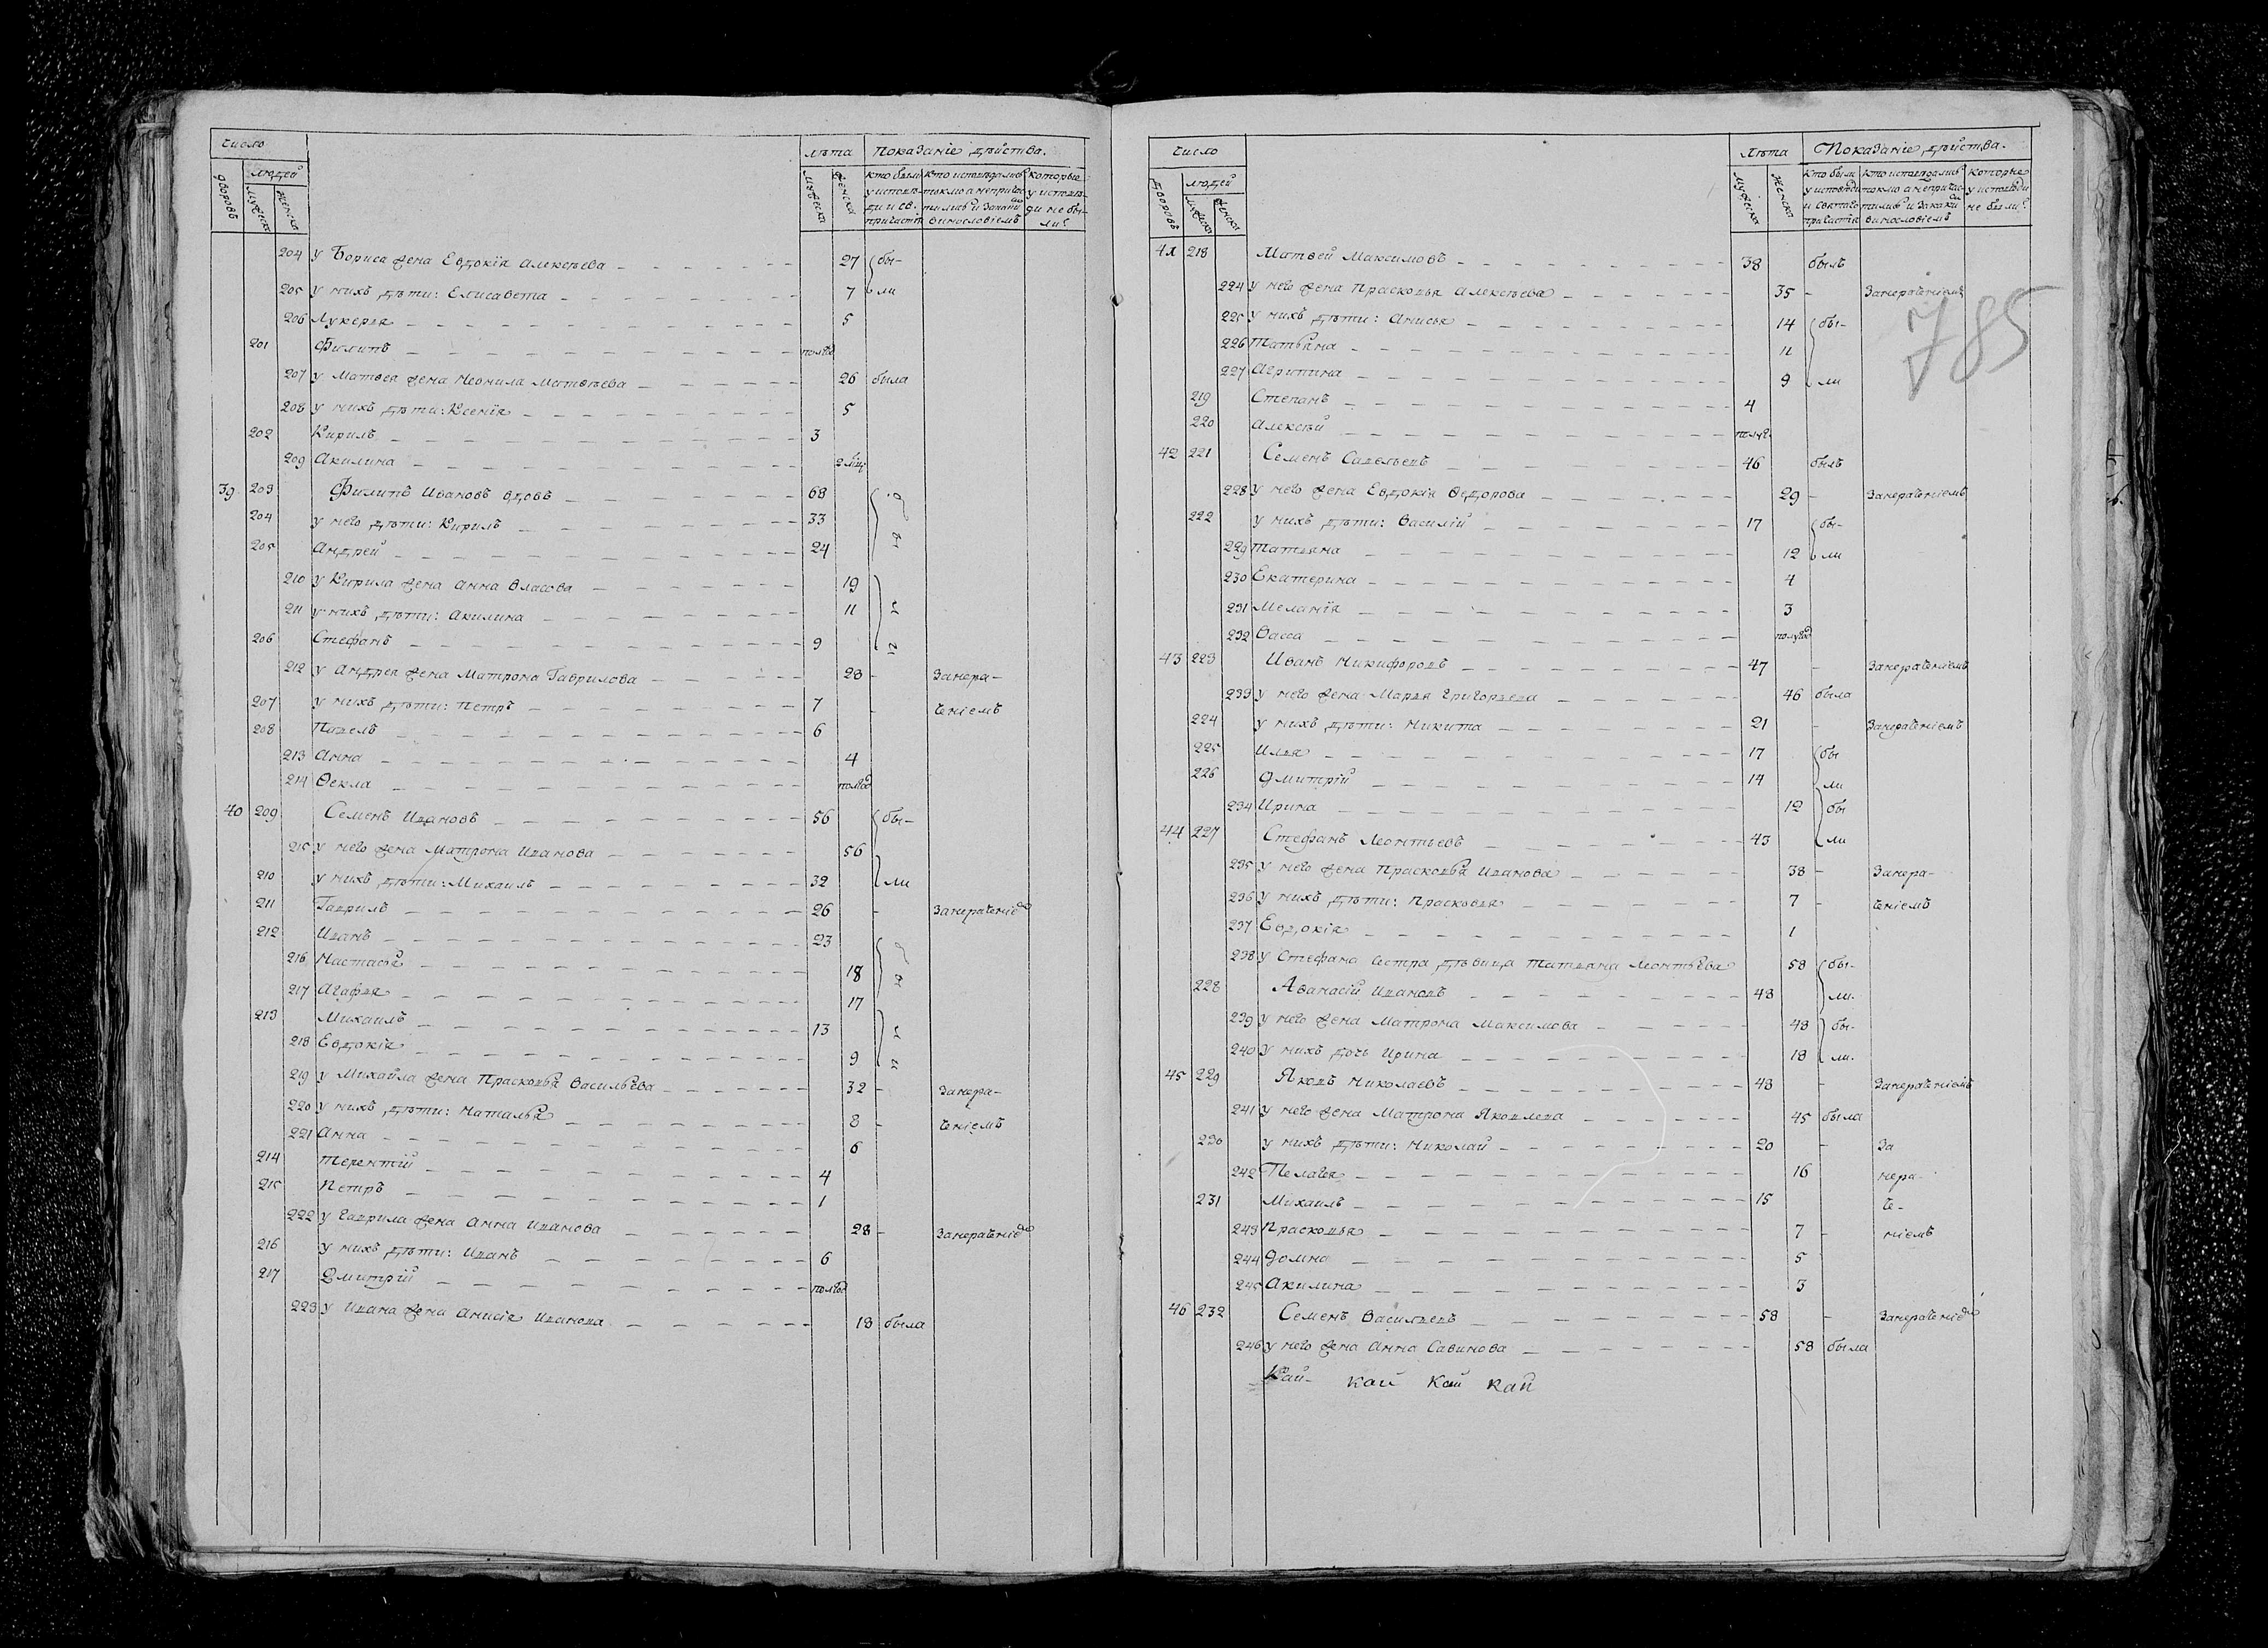 число
людей
дворовъ
мужеска
женска
лѣта
мужеска
женска
Показаніе дѣйства.
кто были у исповѣди и св. причастія
кто исповѣдались токмо а непричастились и за каким винословіемъ
которые у исповѣди не были
204 у Бориса жена Евдокія Алексѣева 27 бы-
205 у нихъ дѣти: Елисавета 7 ли
206 Лукерья 5
201 Филипъ полгод
207 у Матвея жена Неонила Матвѣева 26 была
208 у нихъ дѣти: Ксенія 5
202 Кирилъ 3
209 Акилина 2 мѣц
39 203 Филипъ Ивановъ вдовъ 68 б
204 у него дѣти: Кирилъ 33
205 Андрей 24 ы
210 у Кирила жена Анна Власова 19
211 у нихъ дѣти: Акилина 11 л
206 Стефанъ 9 и
212 у Андрея жена Матрона Гаврилова 28 - Занера-
207 у нихъ дѣти: Петръ 7 - ченіемъ
208 Павелъ 6
213 Анна 4
214 Ѳекла полгод
40 209 Семенъ Ивановъ 56 бы-
215 у него жена Матрона Иванова 56
210 у нихъ дѣти: Михаилъ 32 ли
211 Гаврилъ 26 - Занераченіе
212 Иванъ 23 б
216 Настасья 18
217 Агафья 17 ы
213 Михаилъ 13 л
218 Евдокія 9 и
219 у Михайла жена Прасковья Васильева 32 - Занера-
220 у нихъ дѣти: Наталья 8 - ченіемъ
221 Анна 6
214 Терентій 4
215 Петръ 1
222 у Гаврила жена Анна Иванова 28 - Занераченіе
216 у нихъ дѣти: Иванъ 6
217 Дмитрій полгод
223 у Ивана жена Анисія Иванова 18 была
число
людей
дворовъ
мужеска
женска
лѣта
мужеска
женска
Показаніе дѣйства.
кто были у исповѣди и святаго причастія
кто исповѣдались токмо а непричастились и за каким винословіемъ
которые у исповѣди не были
785
41 218 Матвей Максимовъ 38 былъ
224 у него жена Прасковья Алексѣева 35 - Занераченіемъ
225 у нихъ дѣти: Анисья 14 бы-
226 Татьяна 11
227 Агрипина 9 ли
219 Степанъ 4
220 Алексѣй полуг.
42 221 Семенъ Савельевъ 46 былъ
228 у него жена Евдокія Ѳедорова 29 - Занераченіемъ
222 у нихъ дѣти: Василій 17 бы-
229 Татьяна 12 ли
230 Екатерина 4
231 Меланія 3
232 Васса полугод
43 223 Иванъ Никифоровъ 47 - Занераченіемъ
233 у него жена Марья Григорьева 46 была
224 у нихъ дѣти: Никита 21 - Занераченіемъ
225 Илья 17 бы
226 Дмитрій 14 ли
234 Ирина 12 бы
44 227 Стефанъ Леонтьевъ 43 ли
235 у него жена Прасковья Иванова 38 - Занера-
236 у нихъ дѣти: Прасковья 7 - ченіемъ
237 Евдокія 1
238 у Стефана сестра дѣвица Татьяна Леонтьева 58 бы-
228 Аѳанасій Ивановъ 48 ли.
239 у него жена Матрона Максимова 48 бы-
240 у нихъ дочь Ирина 18 ли.
45 229 Яковъ Николаевъ 48 - Занераченіемъ
241 у него жена Матрона Яковлева 45 была
230 у нихъ дѣти: Николай 20 - За
242 Пелагея 16 нера-
231 Михаилъ 15 че-
243 Прасковья 7 - ніемъ
244 Домна 5
245 Акилина 3
46 232 Семенъ Васильевъ 58 - Занераченіе
246 у него жена Анна Савинова 58 была
Кай- кай кай кай